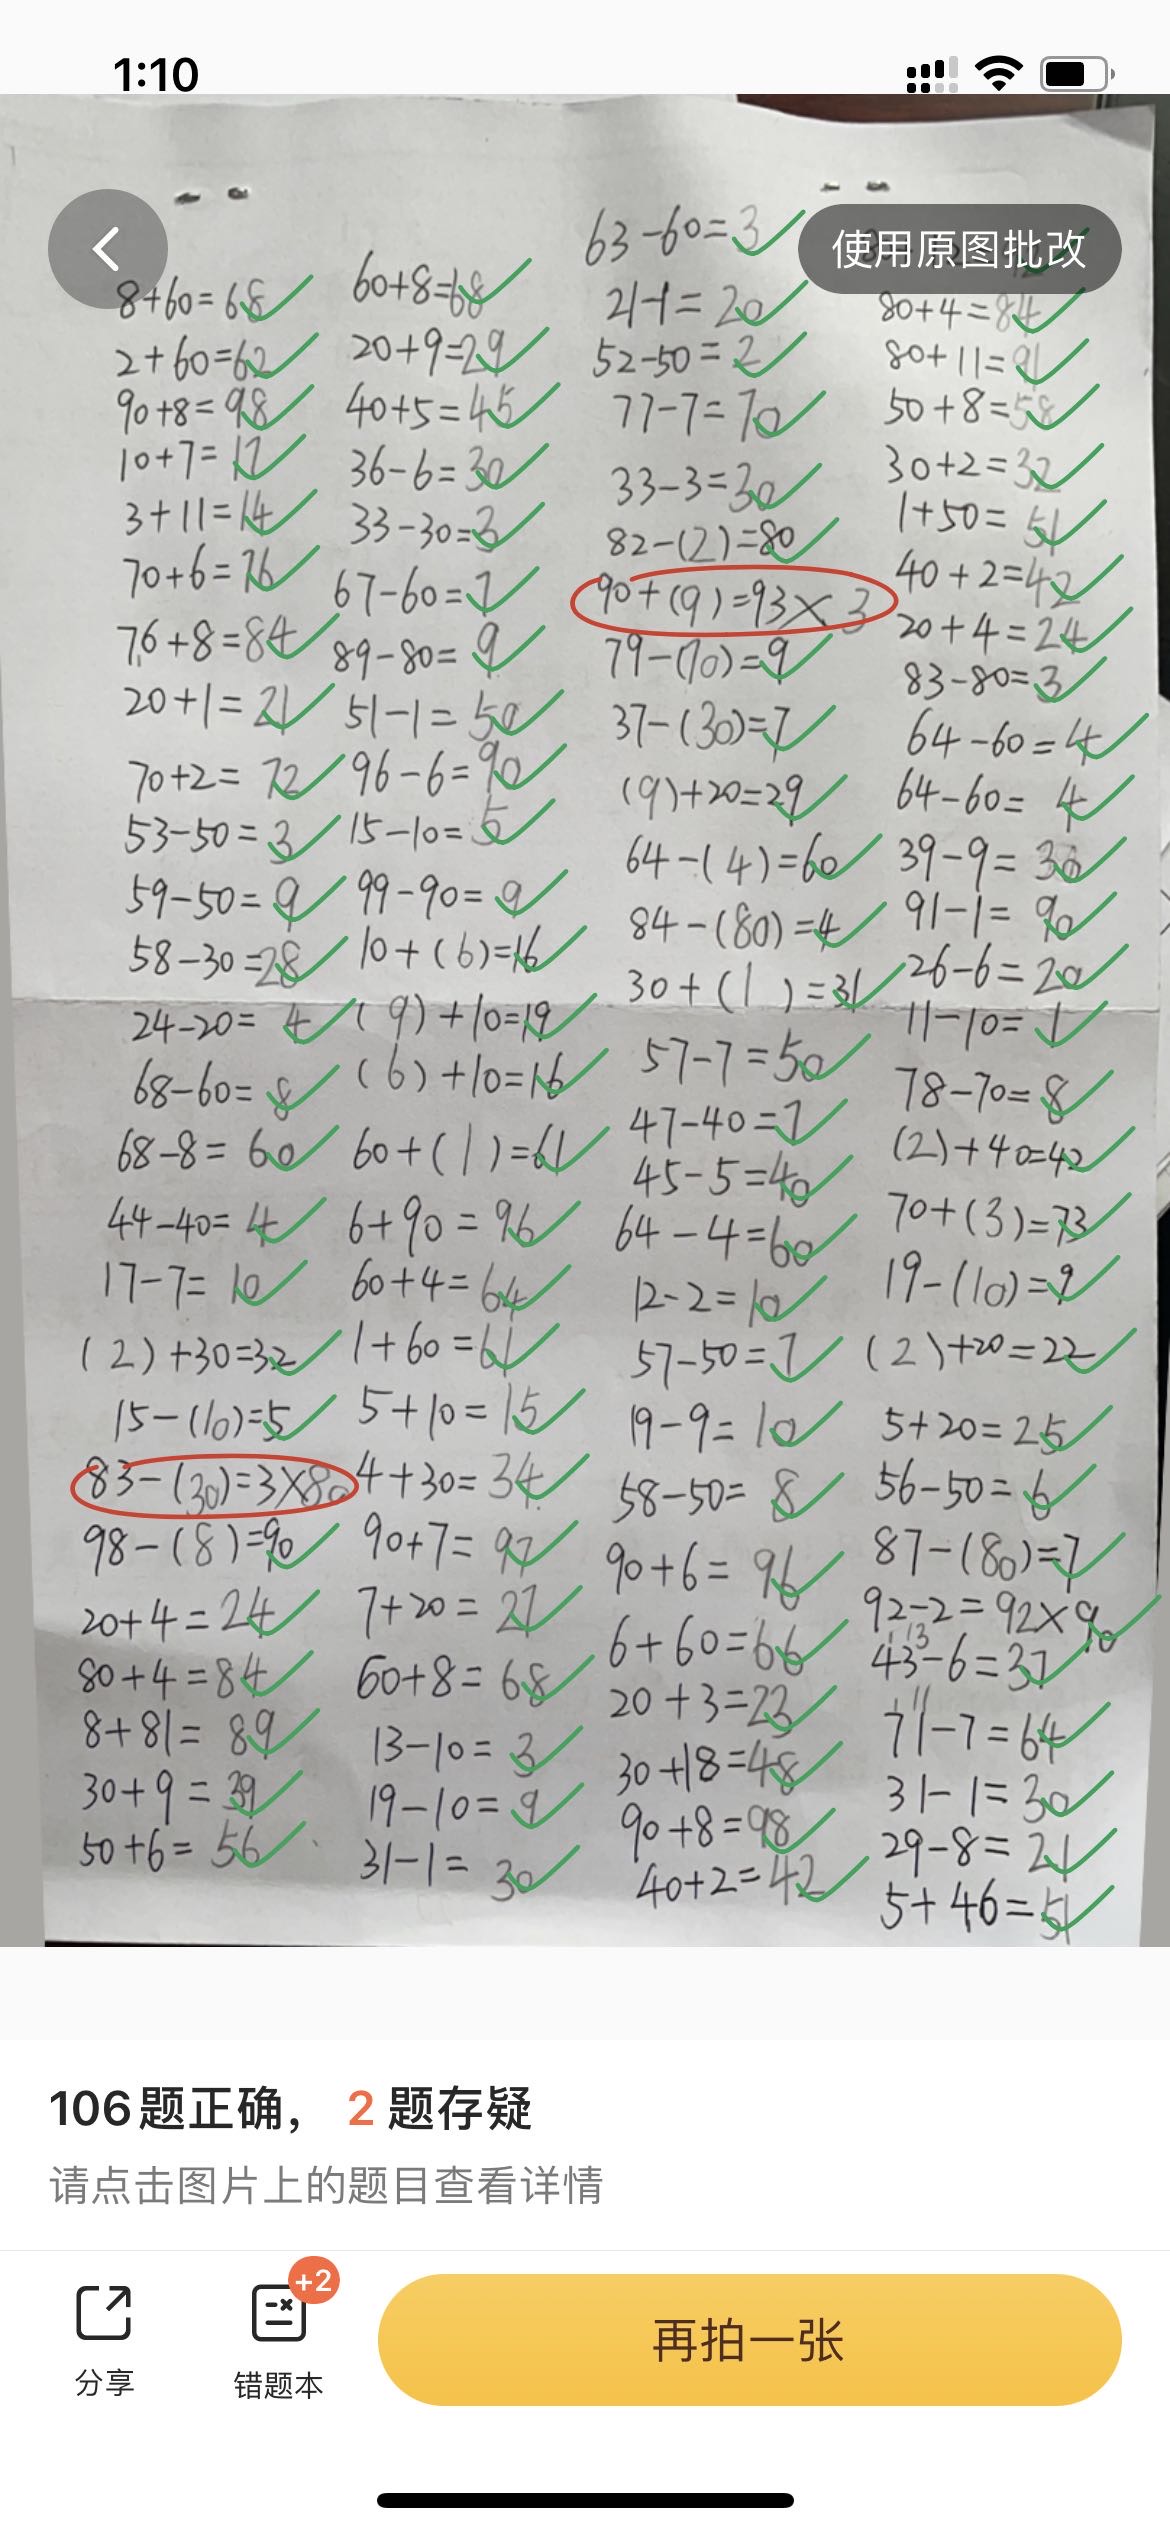 1:10
使用原图批改
8+60=68
2+60=62
90+8=98
10+7=17
3+11=14
70+6=76
76+8=84
20+1=21
70+2=72
53-50=3
59-50=9
58-30=28
24-20=4
68-60=8
68-8=60
44-40=4
17-7=10
(2)+30=32
15-(10)=5
83-(30)=3×80
98-(8)=90
20+4=24
80+4=84
8+81=89
30+9=39
50+6=56
60+8=68
20+9=29
40+5=45
36-6=30
33-30=3
67-60=7
89-80=9
51-1=50
96-6=90
15-10=5
99-90=9
10+(6)=16
(9)+10=19
(6)+10=16
60+(1)=61
6+90=96
60+4=64
1+60=61
5+10=15
4+30=34
90+7=97
7+20=27
60+8=68
13-10=3
19-10=9
31-1=30
63-60=3
21-1=20
52-50=2
77-7=70
33-3=30
82-(2)=80
90+(9)=93×3
79-(70)=9
37-(30)=7
(9)+20=29
64-(4)=60
84-(80)=4
30+(1)=31
57-7=50
47-40=7
45-5=40
64-4=60
12-2=10
57-50=7
19-9=10
58-50=8
90+6=96
6+60=66
20+3=23
30+18=48
90+8=98
40+2=42
80+4=84
80+11=91
50+8=58
30+2=32
1+50=51
40+2=42
20+4=24
83-80=3
64-60=4
64-60=4
39-9=30
91-1=90
26-6=20
11-10=1
78-70=8
(2)+40=42
70+(3)=73
19-(10)=9
(2)+20=22
5+20=25
56-50=6
87-(80)=7
92-2=92×90
43-6=37
71-7=64
31-1=30
29-8=21
5+46=51
106题正确， 2 题存疑
请点击图片上的题目查看详情
+2
分享
错题本
再拍一张